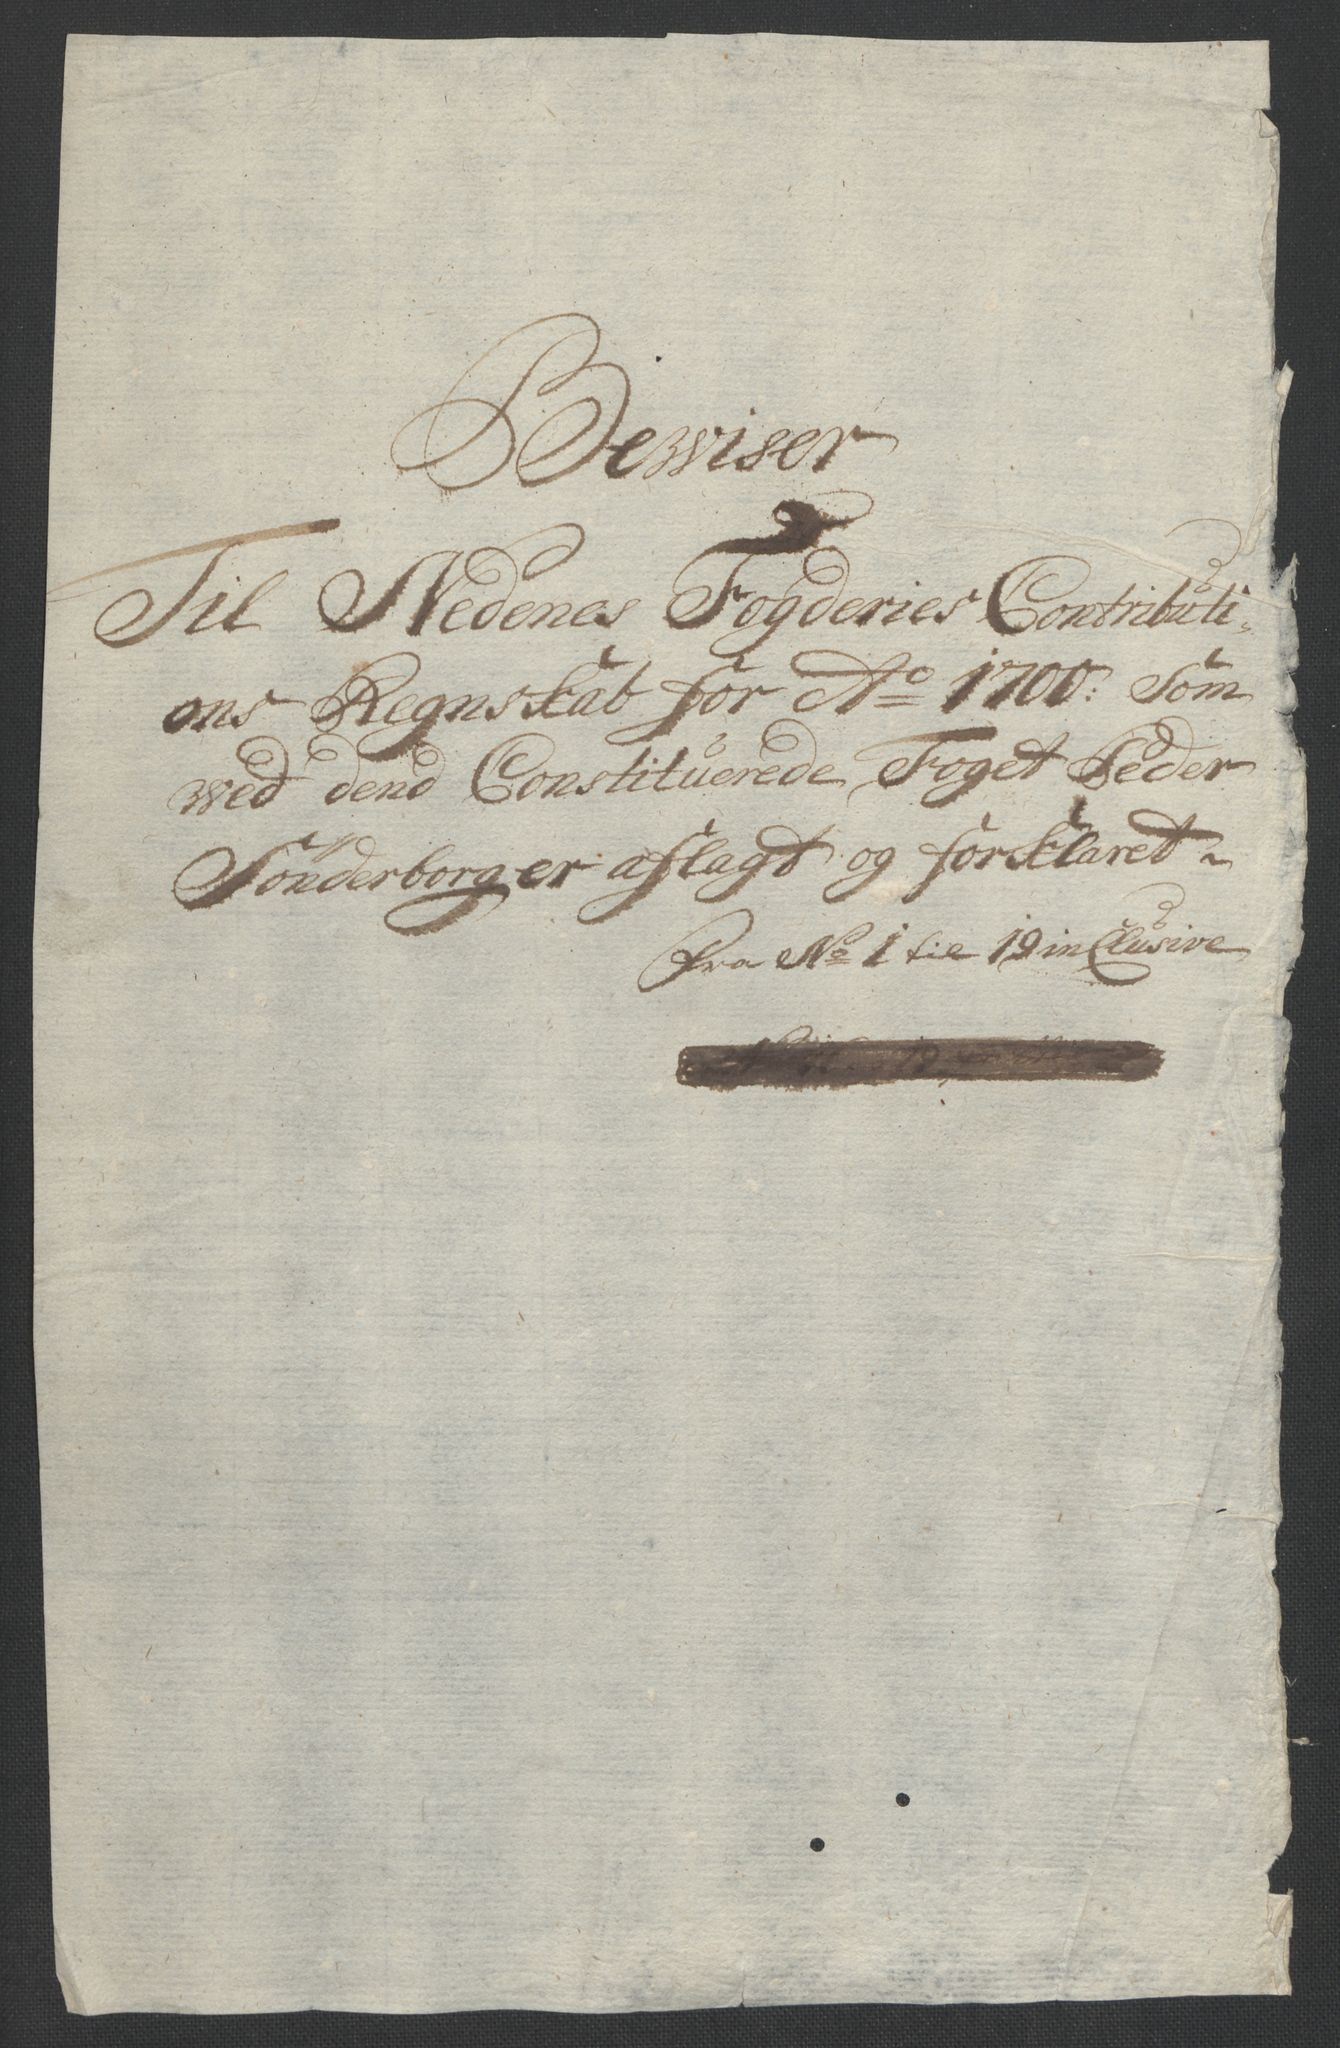 Bewiser
Til Nedenes Fogderies Contributi-
ons Regnskab for Ao 1700: Som
wed dend Constituerede Foget Peder
Sönderborg er aflagt og forklaret
fra No 1 til 19 inClusive